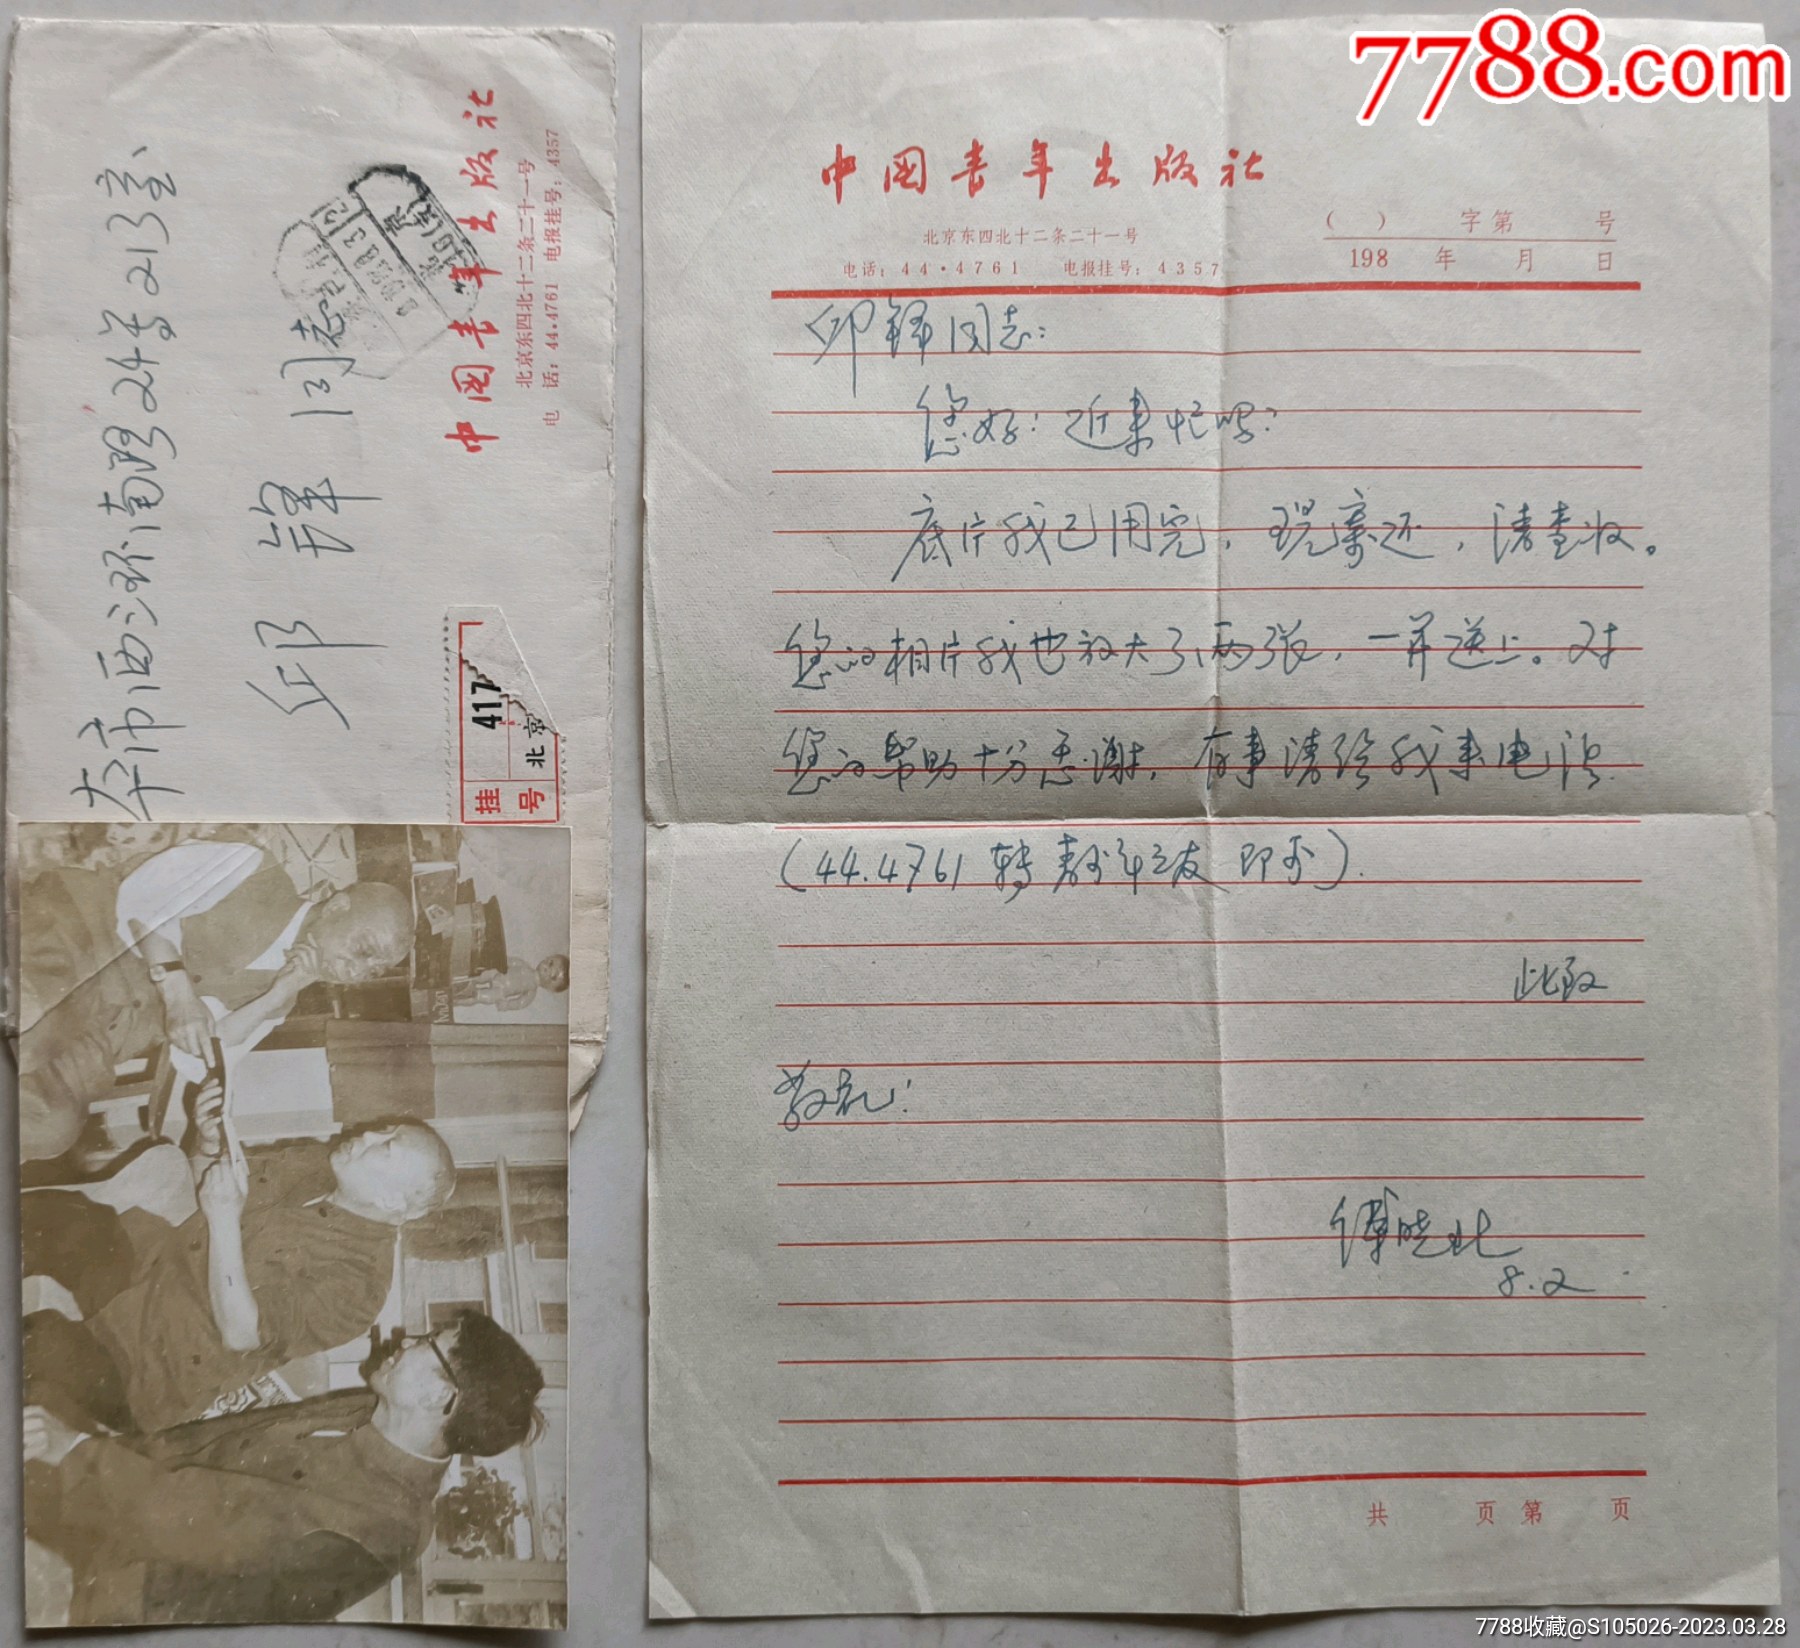 7788.com
中国青年出版社
北京东四北十二条二十一号
电话：44·4761 电报挂号：4357
（ ） 字第 号
198 年 月 日
邱锋同志：
您好！近来忙吧？
底片我已用完，现寄还，请查收。
您的相片我也放大了两张，一并送上。对
您的帮助十分感谢，有事请给我来电话
（44.4761 转青年之友即可）.
此致
敬礼！
傅晓北
8.2
共 页 第 页
本市西环南路24号213室
邱锋 同志
中国青年出版社
北京东四北十二条二十一号
电 话：44.4761 电报挂号：4357
挂号
417
北京
7788收藏@S105026-2023.03.28